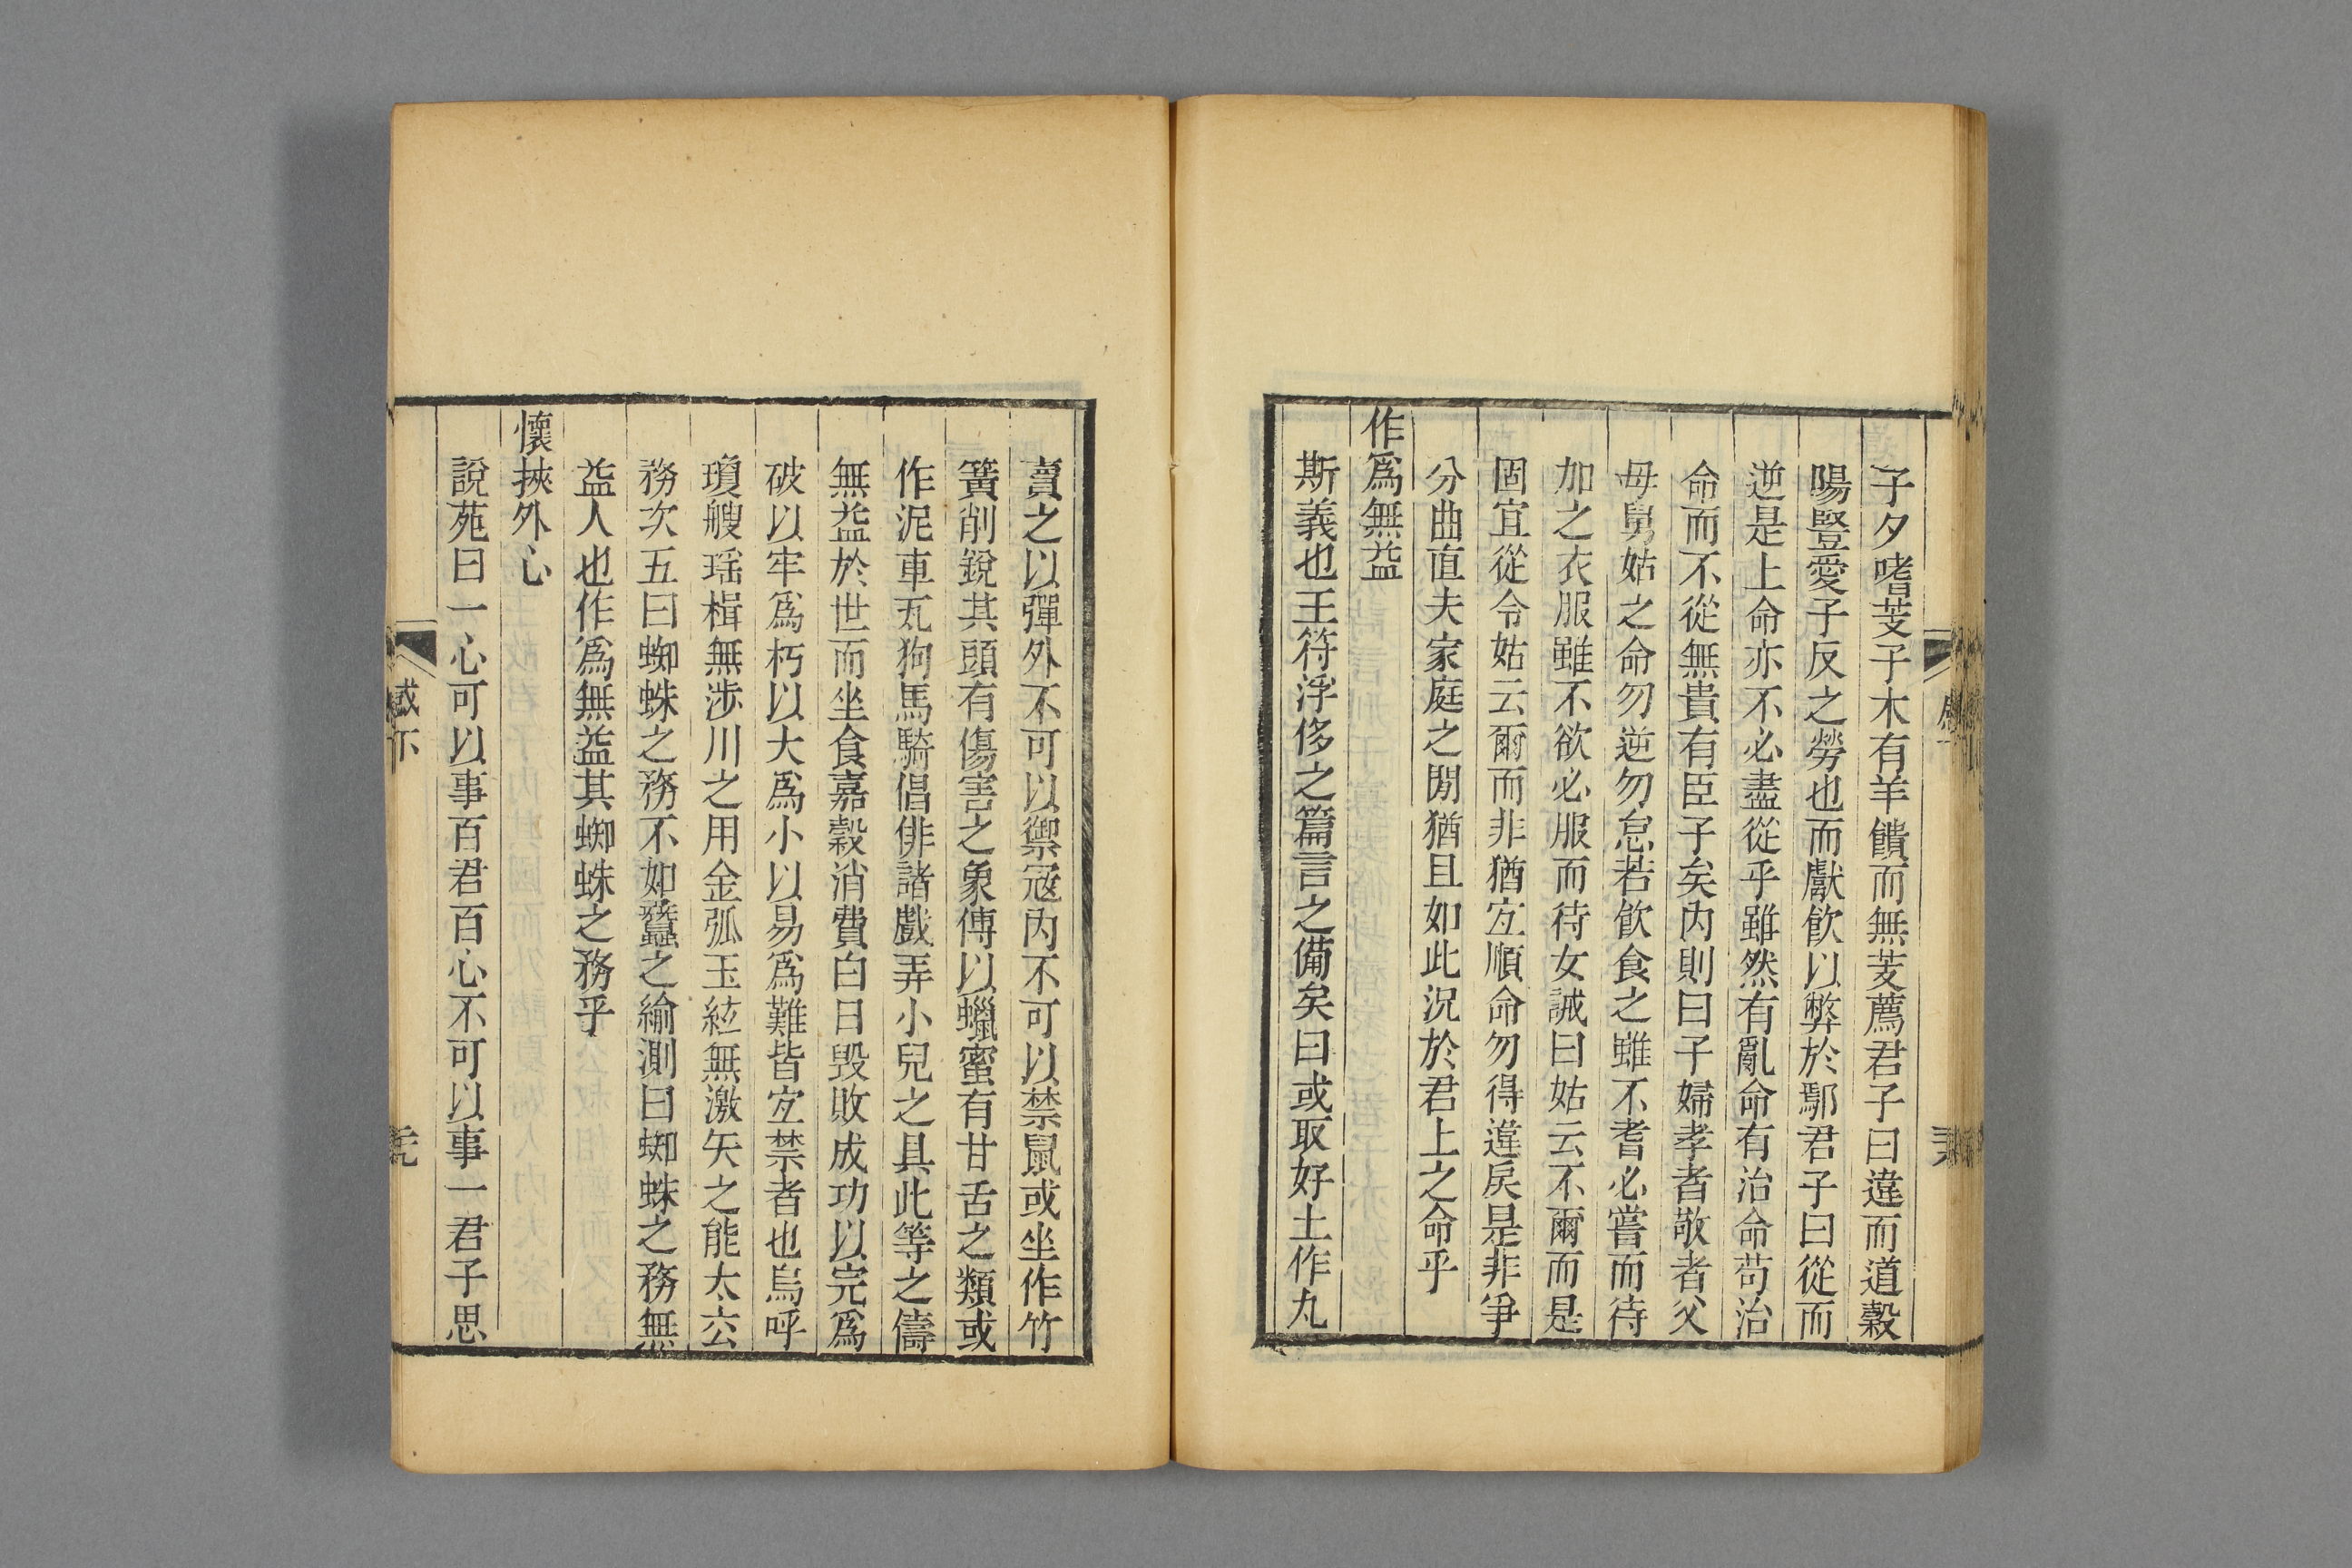 子夕嗜芰子木有羊饋而無芰薦君子曰違而道糓
陽豎愛子反之勞也而獻飮以弊於鄢君子曰從而
逆是上命亦不必盡從乎雖然有亂命有治命苟治
命而不從無貴有臣子矣内則曰子婦孝者敬者父
母舅姑之命勿逆勿怠若飮食之雖不耆必嘗而待
加之衣服雖不欲必服而待女誡曰姑云不爾而是
固宜從令姑云爾而非猶宐順命勿得違戾是非爭
分曲直夫家庭之閒猶且如此況於君上之命乎
作爲無益
斯義也王符浮侈之篇言之備矣曰或取好土作丸
賣之以彈外不可以禦寇内不可以禁鼠或坐作竹
簧削銳其頭有傷害之象傅以蠟蜜有甘舌之類或
作泥車瓦狗馬騎倡俳諸戲弄小兒之具此等之儔
無益於世而坐食嘉糓消費白日毀敗成功以完爲
破以牢爲朽以大爲小以易爲難皆宐禁者也烏呼
瓊艘瑶楫無涉川之用金弧玉絃無激矢之能太玄
務次五曰蜘蛛之務不如蠶之緰測曰蜘蛛之務無
益人也作爲無益其蜘蛛之務乎
懷挾外心
說苑曰一心可以事百君百心不可以事一君子思
下